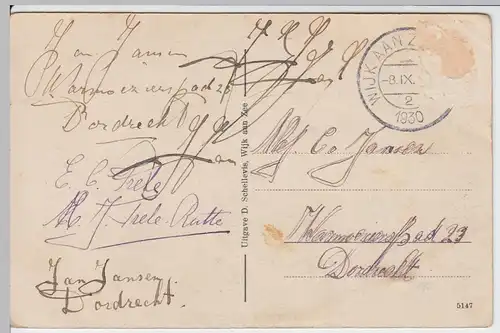 Jan Jansen
Warmoezierspad 23
Dordrecht
E. C. Trele
M. J. Trele-Rutte
Jan Jansen
Dordrecht.
Uitgave D. Schellevis, Wijk aan Zee
WIJK AAN Z
-8.IX.
2
1930
C. Jansen
Warmoezierspad 23
Dordrecht
5147